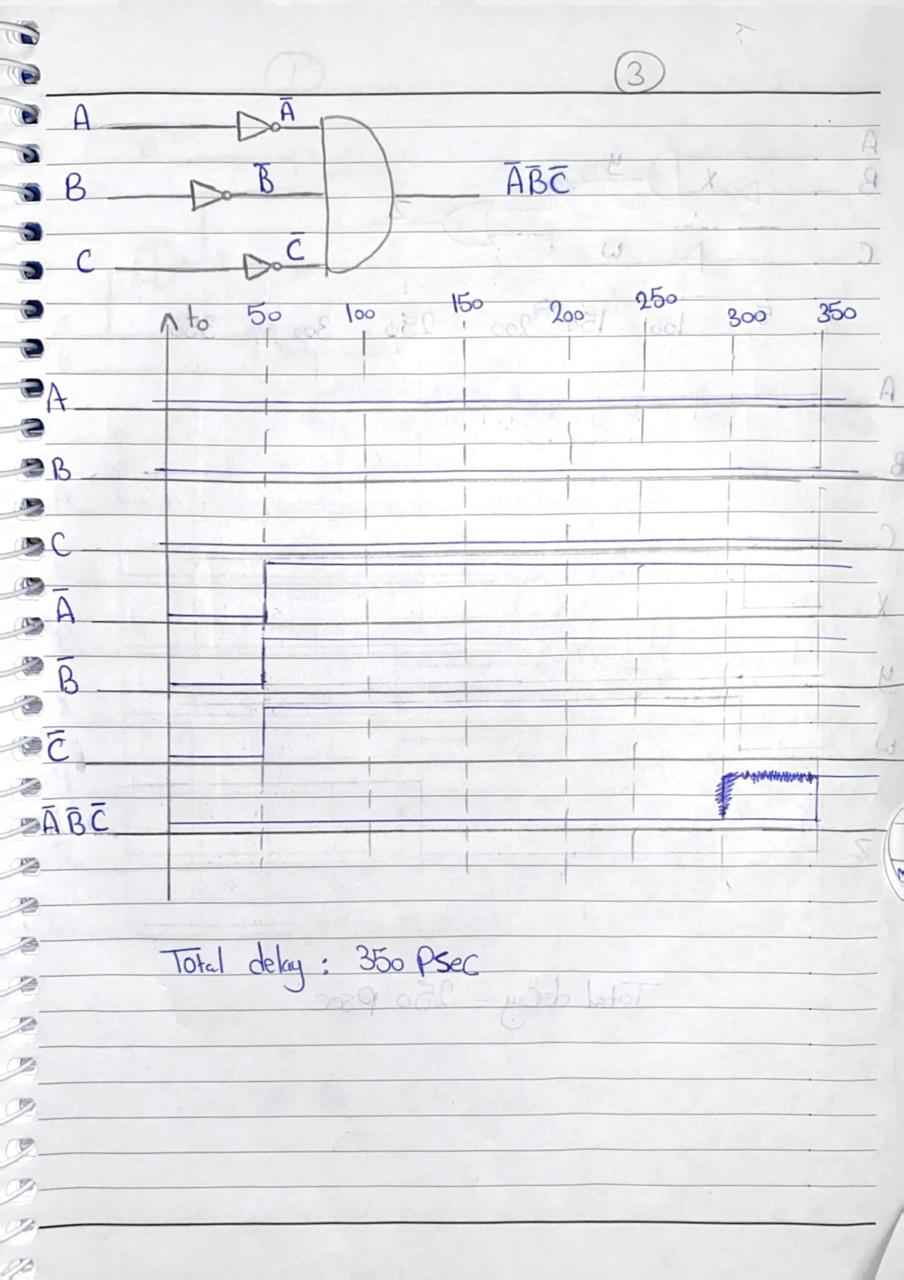 3
A Ā
B B̄ ĀB̄C̄
C C̄
to 50 100 150 200 250 300 350
A
B
C
Ā
B̄
C̄
ĀB̄C̄
Total delay : 350 Psec